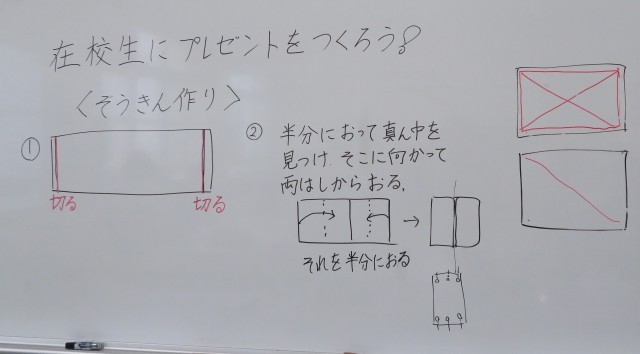 在校生にプレゼントをつくろう!
〈ぞうきん作り〉
①
切る 切る
②
半分におって真ん中を
見つけ、そこに向かって
両はしからおる。
それを半分におる